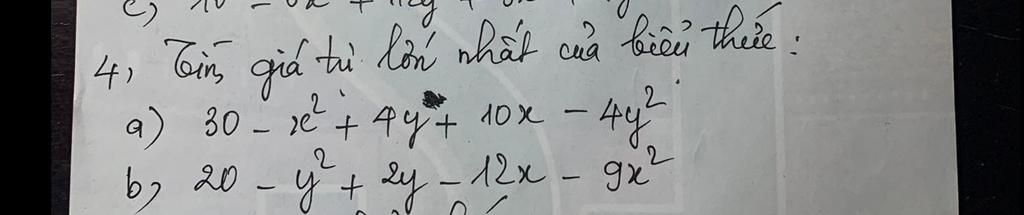 c) 10 - 6x + 12y +
4, Tìm giá trị lớn nhất của biểu thức :
a) 30 - x² + 4y + 10x - 4y²
b, 20 - y² + 2y - 12x - 9x²